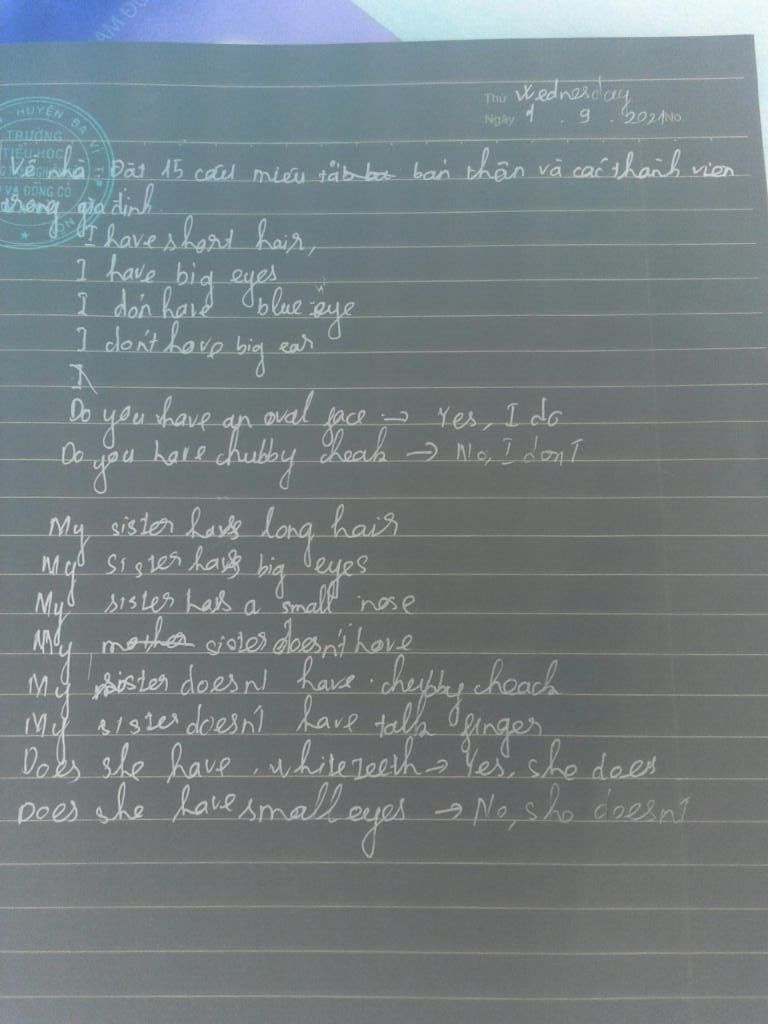 AM ĐƯ
HUYỆN BA VÌ
TRƯỜNG
TIỂU HỌC
VÀ ĐỒNG CỎ
Thứ Wednesday
Ngày 1 . 9 . 2021 No.
Về nhà : Đặt 15 câu miêu tả bản thân và các thành viên
trong gia định.
I have short hair,
I have big eyes
I don have blue eye
I don't have big ear
I
Do you have an oval face → Yes, I do
Do you have chubby cheak → No, I don't
My sister has long hair
My sister has big eyes
My sister has a small nose
My mother sister doesn't have
My sister doesn't have chubby cheack
My sister doesn't have talk finger
Does she have white teeth → Yes, she does
Does she have small eyes → No, she doesn't